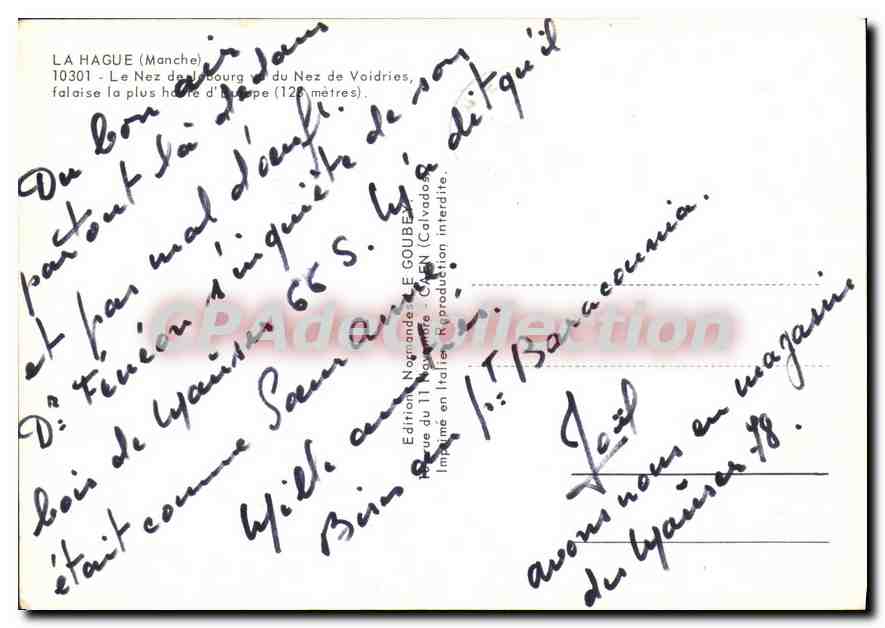 LA HAGUE (Manche)
10301 - Le Nez de Jobourg vu du Nez de Voidries,
falaise la plus haute d'Europe (128 mètres).
Du bon air
partout là dedans
et pas mal d'oeufs.
Dr Fénéon s'inquiète de son
bois de Mauser 66 S. M'a dit qu'il
était comme Soeur Anne.
Mille amitiés.
Bises au Pt Baracounia.
Joël
avons nous en magasin
des Mauser 78.
Editions Normandes LE GOUBEY.
rue du 11 Novembre - CAEN (Calvados)
Imprimé en Italie. Reproduction interdite.
CPAdeCollection